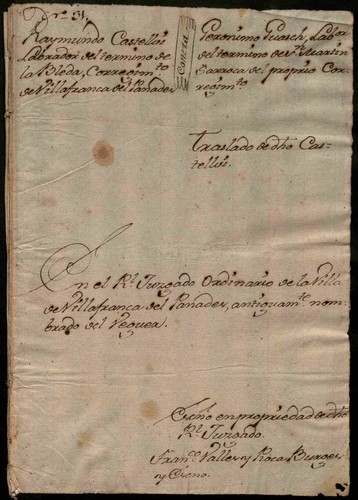 Nro. 31.
Raymundo Castellví
Labrador del termino de
la Bleda, Corregimto
de Villafranca del Panades
Contra
Geronimo Guasch, Labor
del termino de Sn Martin
Sarroca del proprio Cor-
regimto
Traslado de dho Cas-
tellví.
En el Rl Juzgado Ordinario de la Villa
de Villafranca del Panades, antiguamte nom-
brado del Veguer.
Esno en propriedad de dho
Rl Juzgado.
Franco Valles y Roca Burges
y Esno.